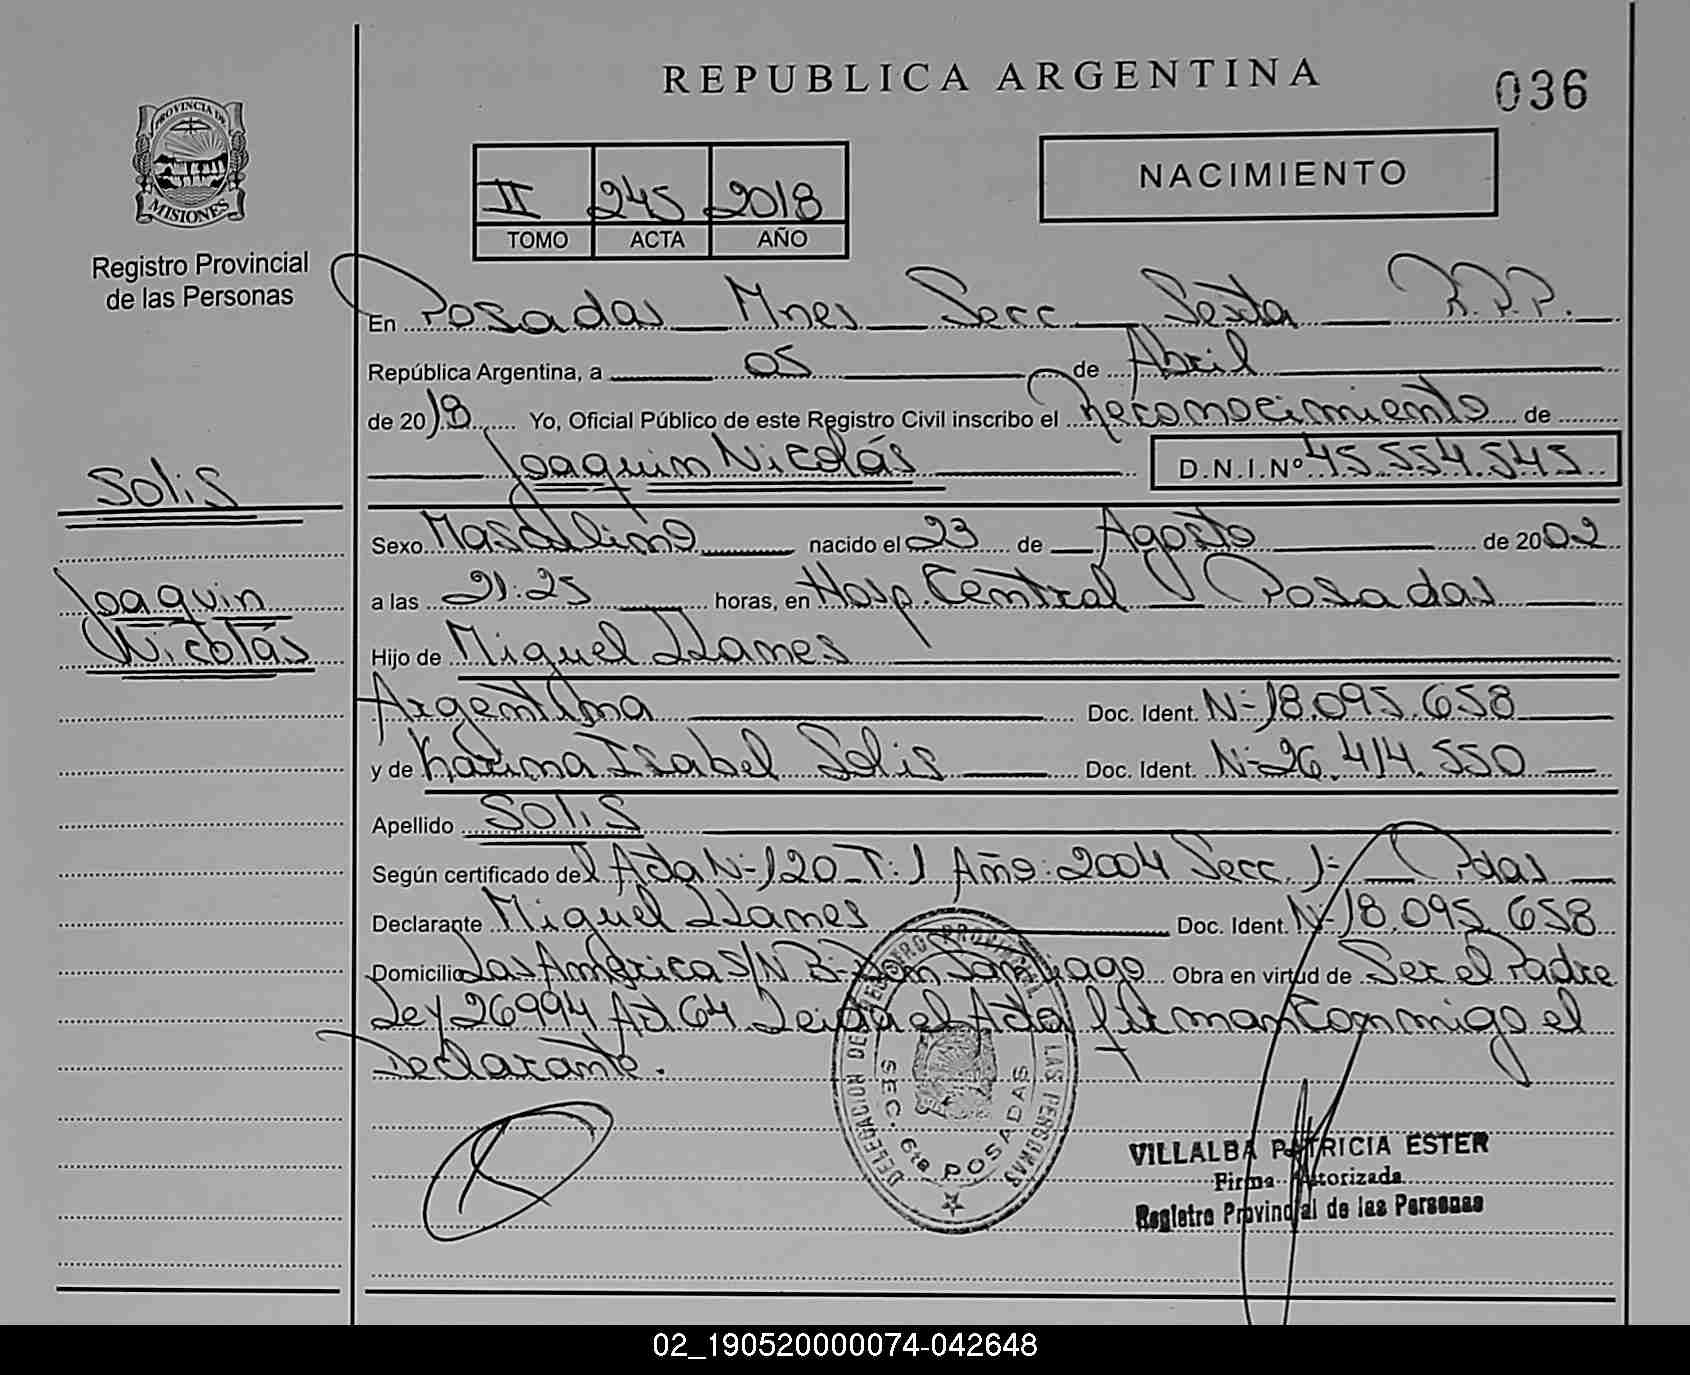 REPUBLICA ARGENTINA
036
PROVINCIA DE
MISIONES
Registro Provincial
de las Personas
II 245 2018
TOMO ACTA AÑO
NACIMIENTO
En Posadas Mnes Secc Sexta R.P.P.
República Argentina, a 05 de Abril
de 2018 Yo, Oficial Público de este Registro Civil inscribo el Reconocimiento de
Joaquin Nicolás D.N.I.Nº 45.554.545
Solis
Joaquin
Nicolás
Sexo Masculino nacido el 23 de Agosto de 2002
a las 21:25 horas, en Hosp. Central Posadas
Hijo de Miguel Llanes
Argentina Doc. Ident. Nº 18.095.658
y de Karina Isabel Solis Doc. Ident. Nº 26.414.550
Apellido Solis
Según certificado del Acta Nº 120 T: 1 Año: 2004 Secc. 1º Pdas
Declarante Miguel Llanes Doc. Ident. Nº 18.095.658
Domicilio Las América S/N Bº San Santiago Obra en virtud de Ser el Padre
Ley 26994 Art 64 Leida el Acta firman conmigo el
Declarante.
DELEGACION DE REGISTRO PROVINCIAL DE LAS PERSONAS
SEC. 6ta POSADAS
VILLALBA PATRICIA ESTER
Firma Autorizada
Registro Provincial de las Personas
02_190520000074-042648